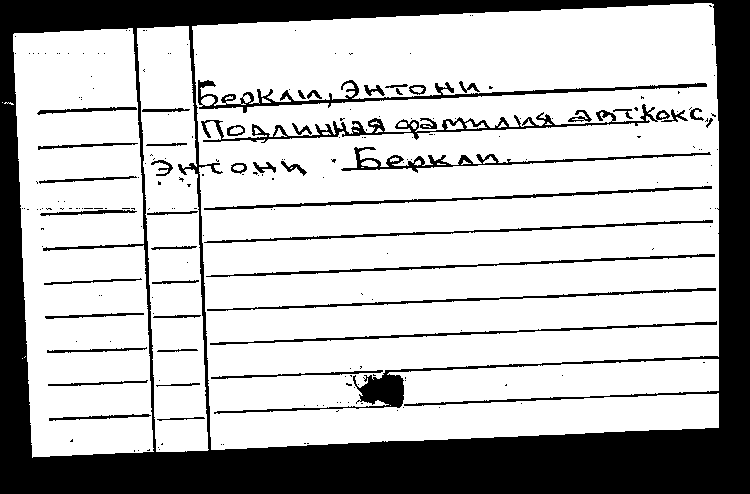 Беркли, Энтони.
Подлинная фамилия авт. Кокс,
Энтони Беркли.